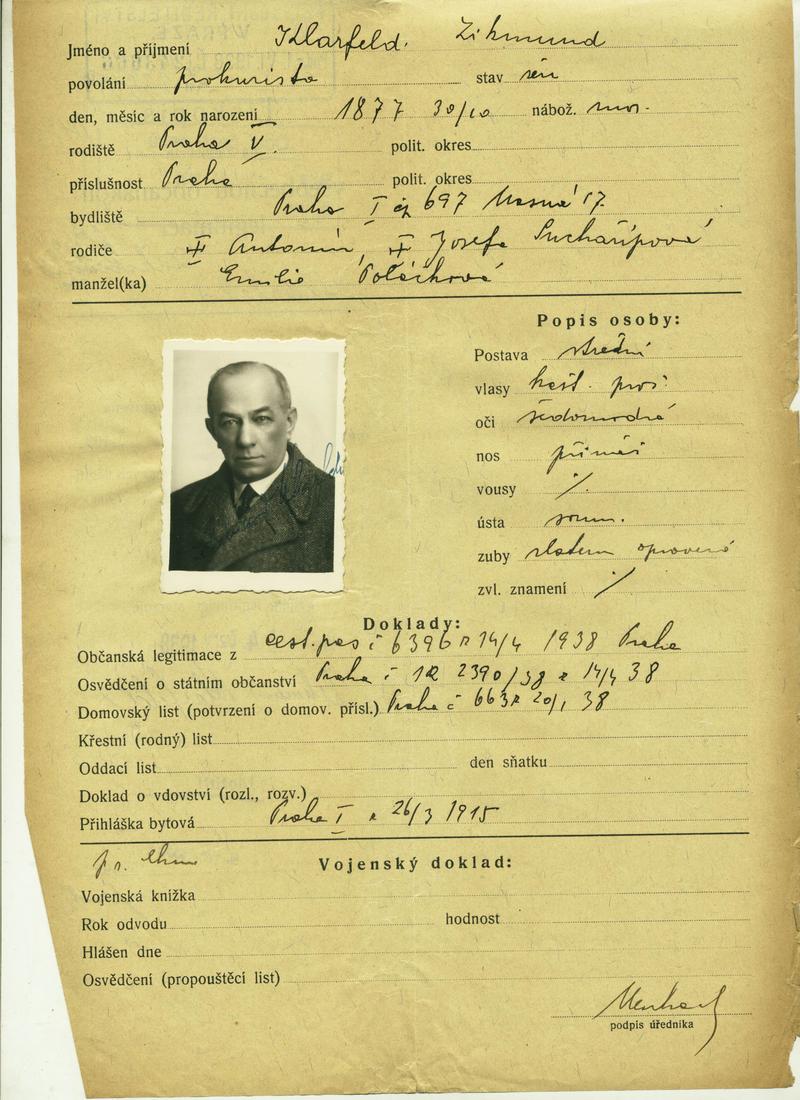 Jméno a příjmení Klarfeld. Zikmund
povolání prokurista stav žen
den, měsíc a rok narození 1877 30/10 nábož. mos.
rodiště Praha V. polit. okres
příslušnost Praha polit. okres
bydliště Praha I čp 697 Masná 17.
rodiče Antonín, Josefa Suchařípová
manžel(ka) Emilie Poláčková
Popis osoby:
Postava střední
vlasy kašt. proš.
oči šedomodré
nos přímý
vousy /.
ústa soum.
zuby zlatem opravené
zvl. znamení /
Doklady:
Občanská legitimace z cest. pas č 6396 z 14/4 1938 Praha
Osvědčení o státním občanství Praha č 2390/38 z 14/4 38
Domovský list (potvrzení o domov. přísl.) Praha č 663 z 20/1 38
Křestní (rodný) list
Oddací list den sňatku
Doklad o vdovství (rozl., rozv.)
Přihláška bytová Praha I z 26/3 1915
Vojenský doklad:
Vojenská knížka
Rok odvodu hodnost
Hlášen dne
Osvědčení (propouštěcí list)
podpis úředníka